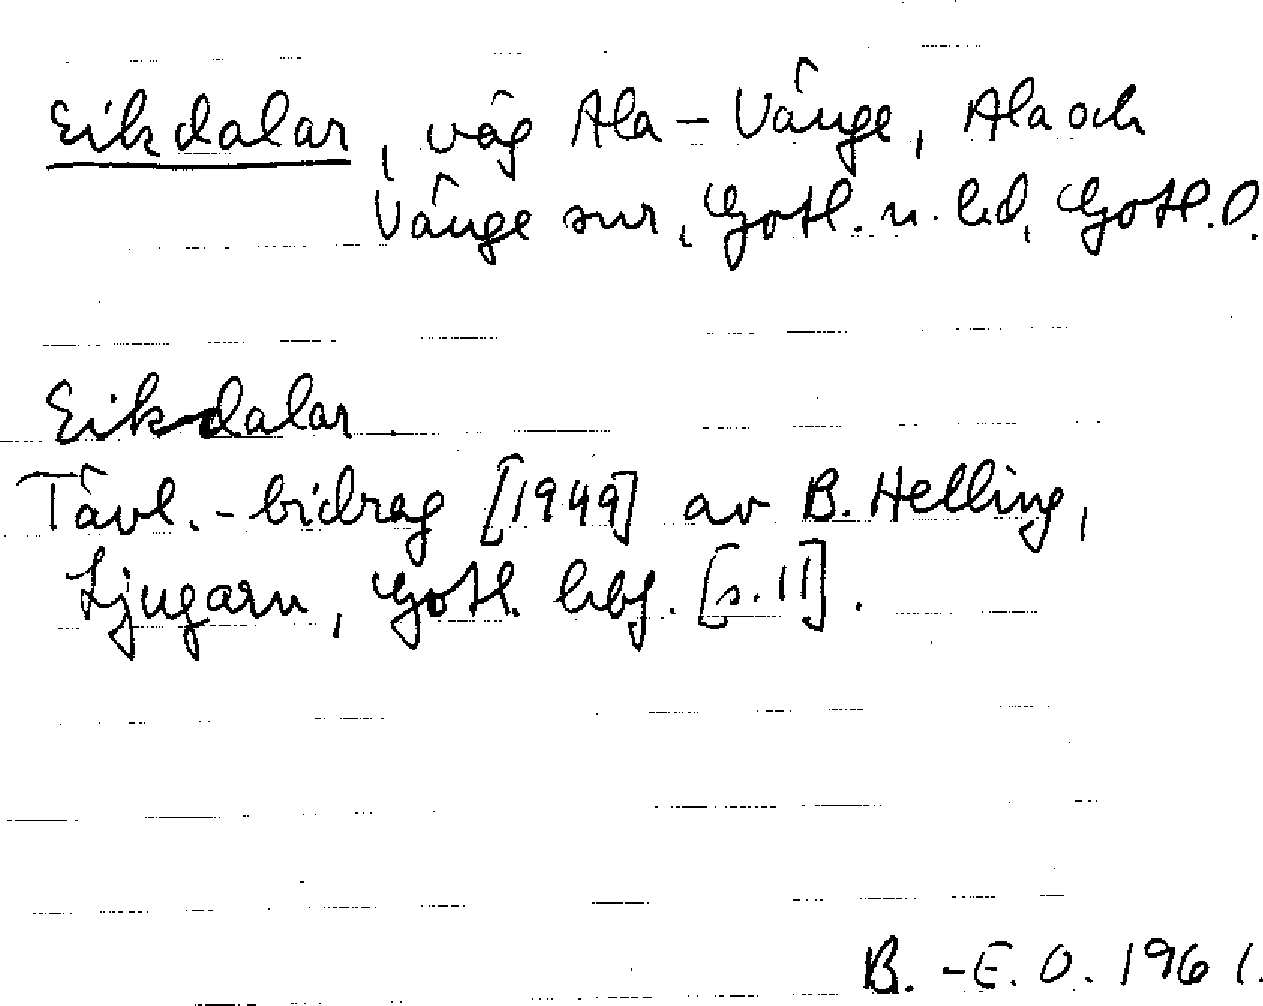 Eikdalar, väg Ala - Vänge, Ala och
Vänge snr, Gotl. n. hd, Gotl. l.
Eikdalar
Tävl.-bidrag [1949] av B. Helling,
Ljugarn, Gotl. hbf. [s. 11].
B.-E. O. 1961.